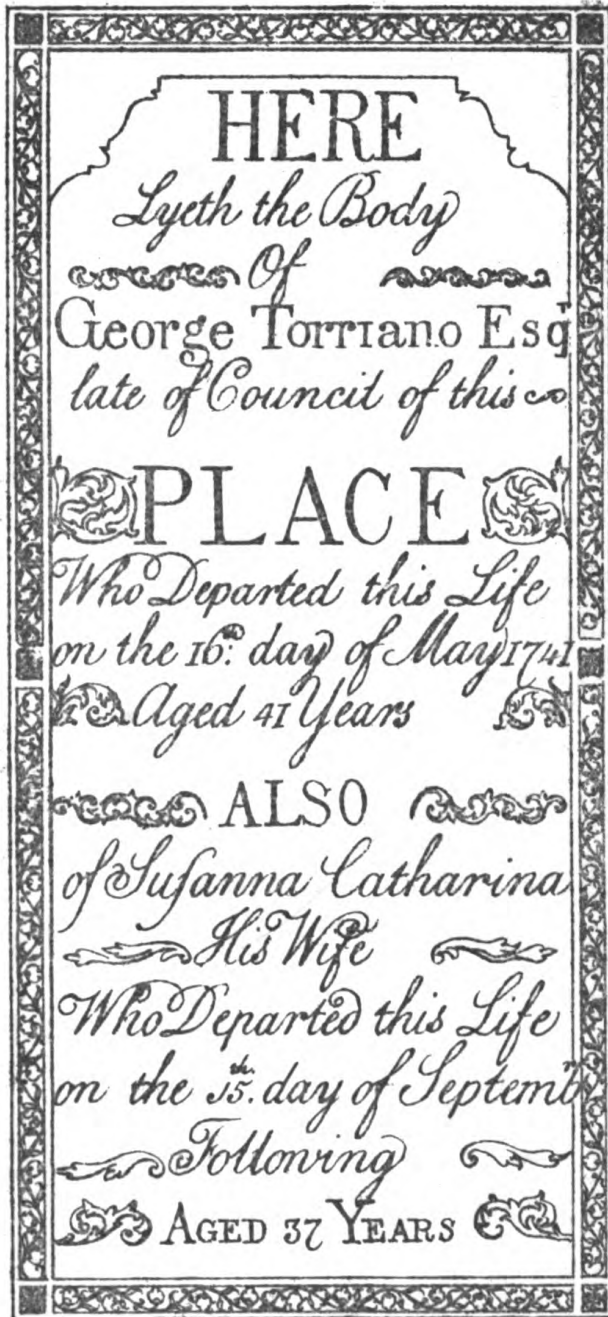 HERE
Lyeth the Body
Of
George Torriano Esqr
late of Council of this
PLACE
Who Departed this Life
on the 16th. day of May 1741
Aged 41 Years
ALSO
of Suſanna Catharina
His Wife
Who Departed this Life
on the 15th. day of Septembr
Following
AGED 37 YEARS